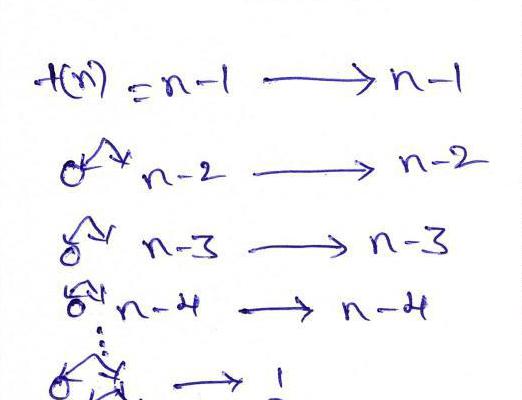 t(n) = n-1 → n-1
0 n-2 → n-2
0 n-3 → n-3
0 n-4 → n-4
0 → 1